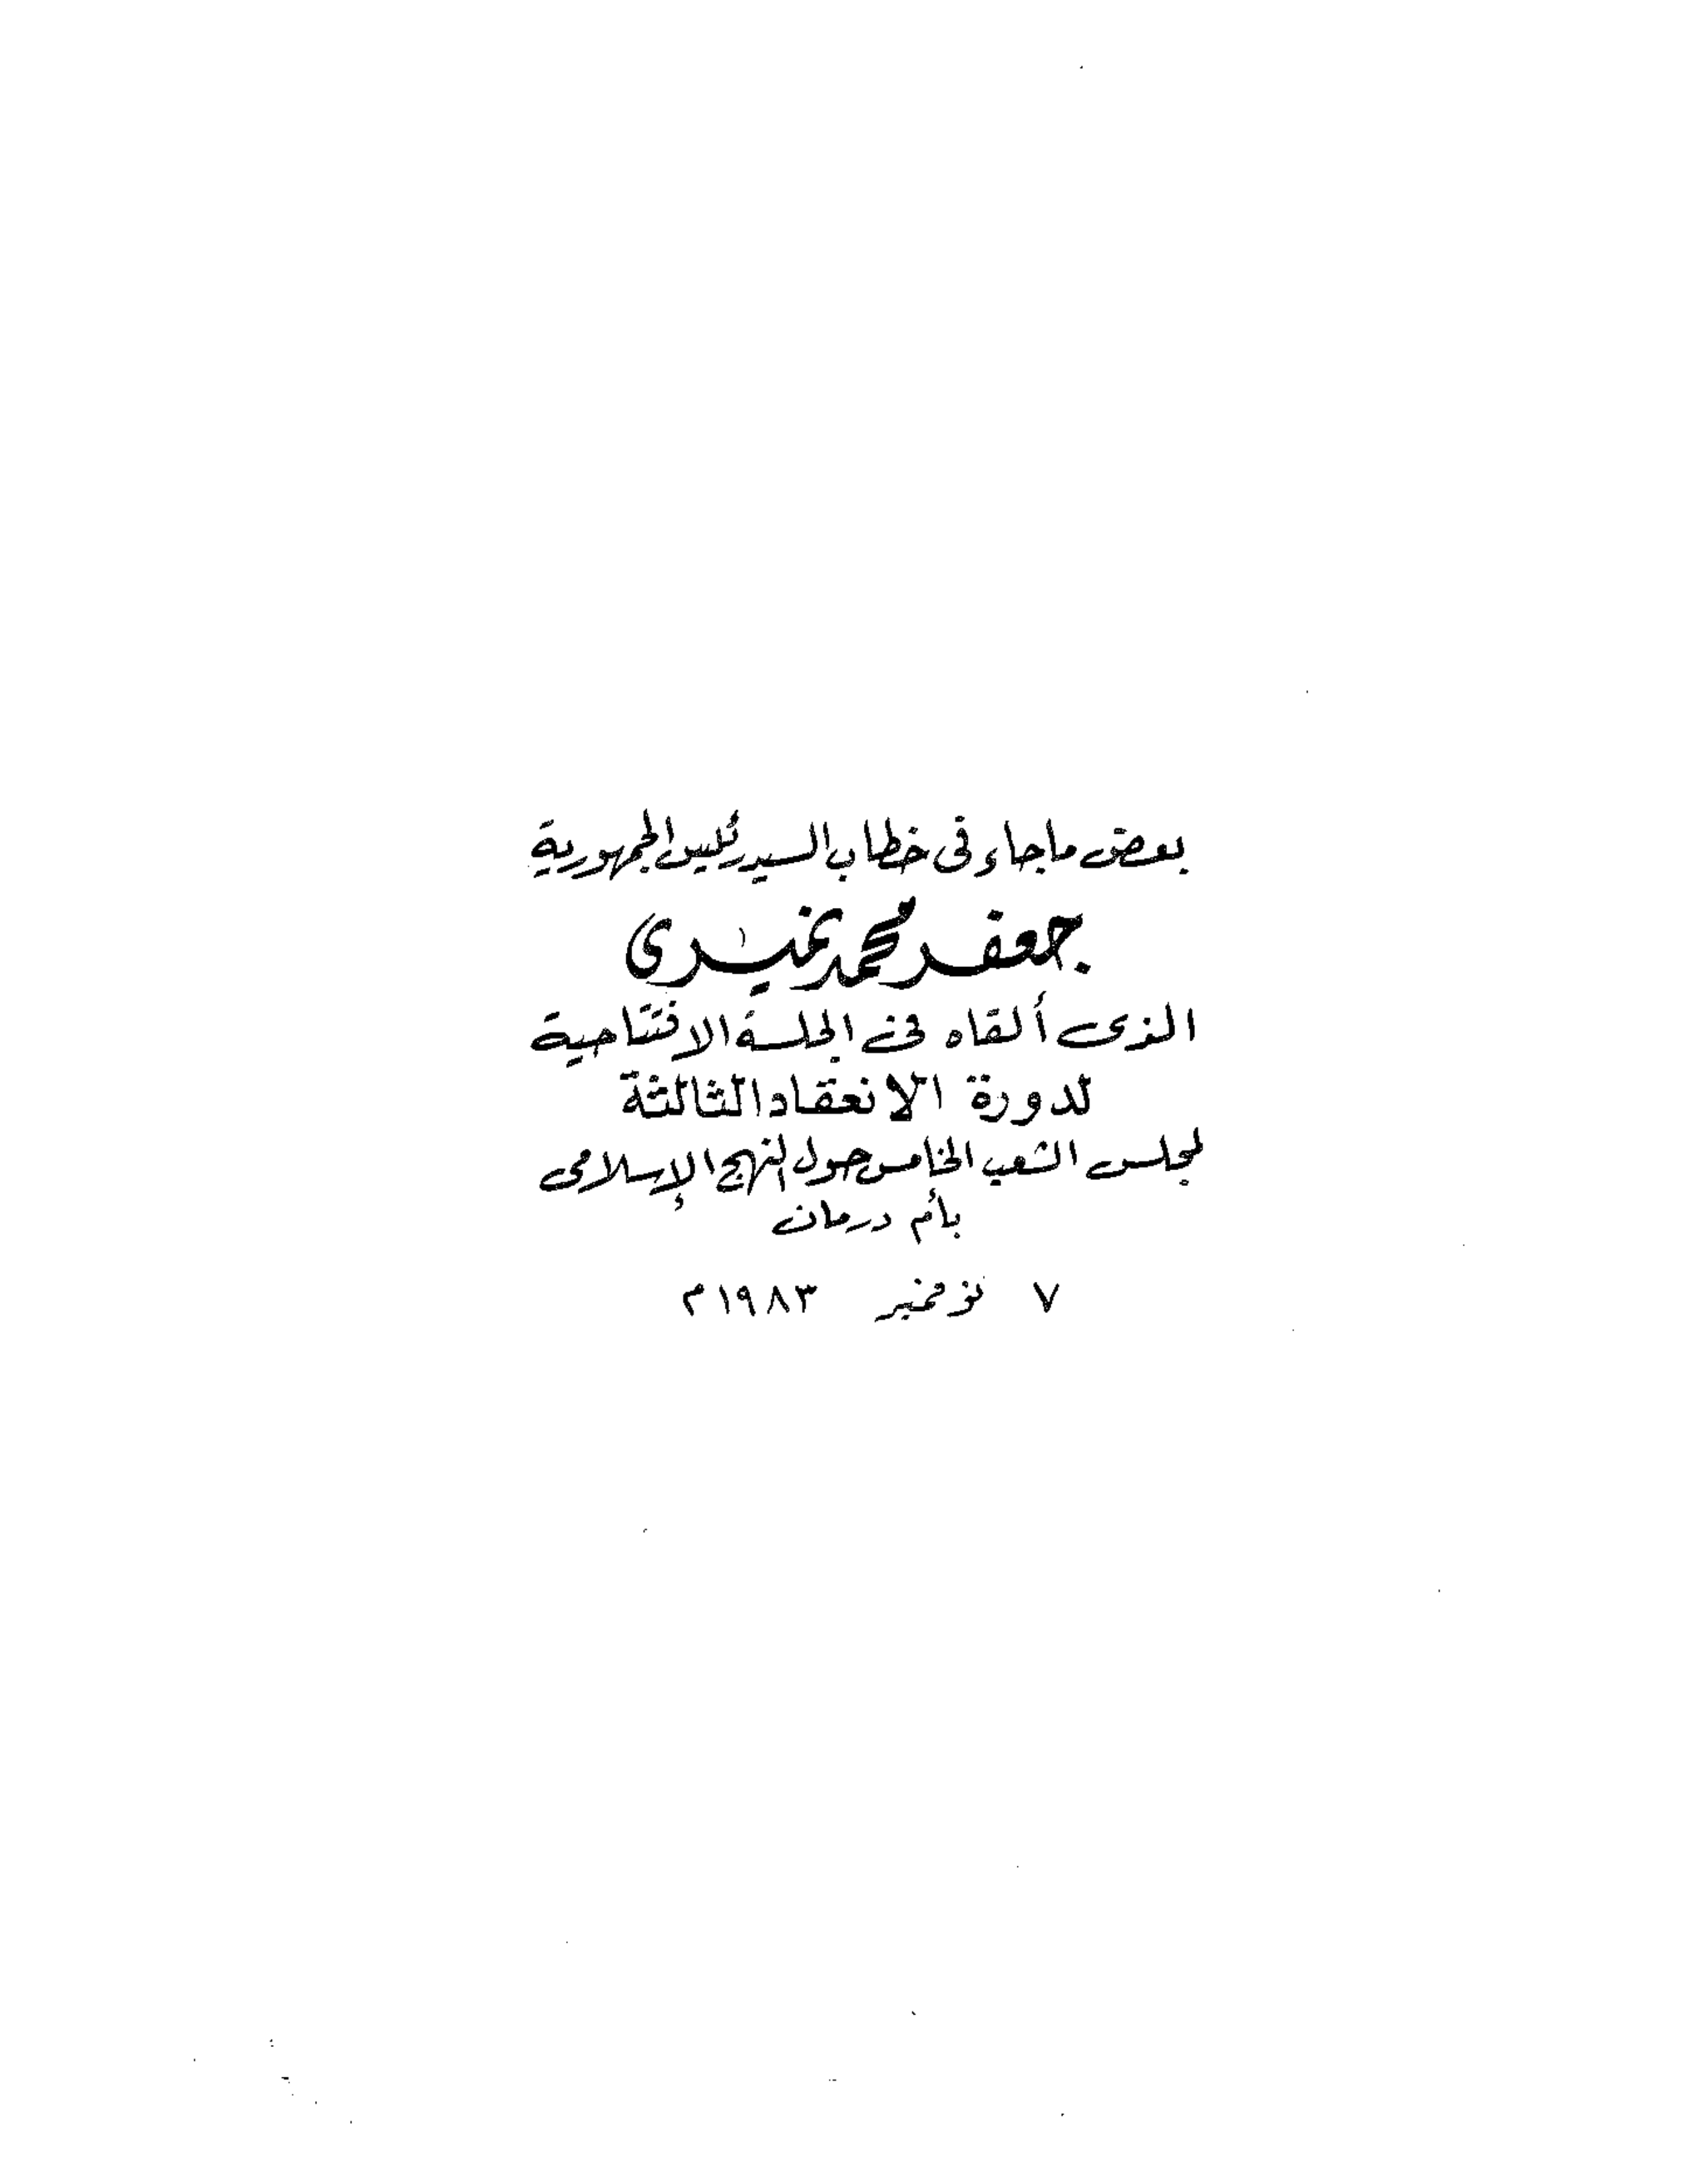 بعض ماجاء فى خطاب السيد رئيس الجمهورية
جعفر محمد نميرى
الذى ألقاه فى الجلسة الافتتاحية
لدورة الانعقاد الثالثة
لمجلس الشعب الخامس حول النهج الإسلامى
بأم درمان
٧ نوفمبر ١٩٨٣م